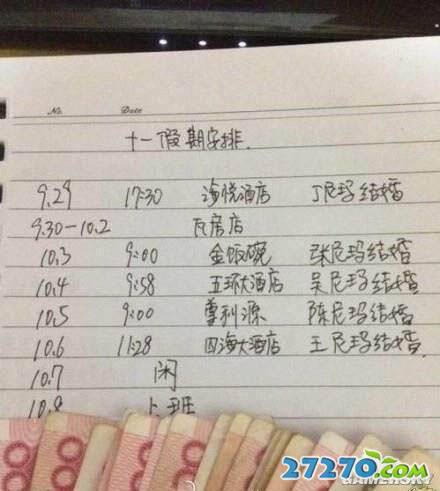 No.
Date
十一假期安排.
9.29 17:30 海悦酒店 丁尼玛结婚
9.30-10.2 瓦房店
10.3 9:00 金饭碗 张尼玛结婚
10.4 9:58 五环大酒店 吴尼玛结婚
10.5 9:00 尊利源 陈尼玛结婚
10.6 11:28 四海大酒店 王尼玛结婚.
10.7 闲
10.8 上班
27270.com